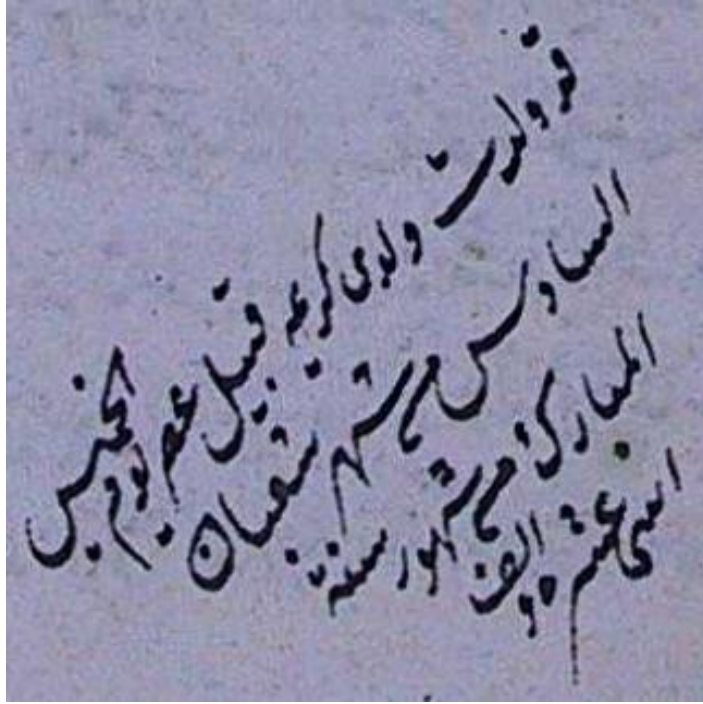 قد ولدت ولدى كريمه قبيل عصر يوم الخميس
السادس من شهر شعبان
المبارك من شهور سنة
اثنى عشر والف